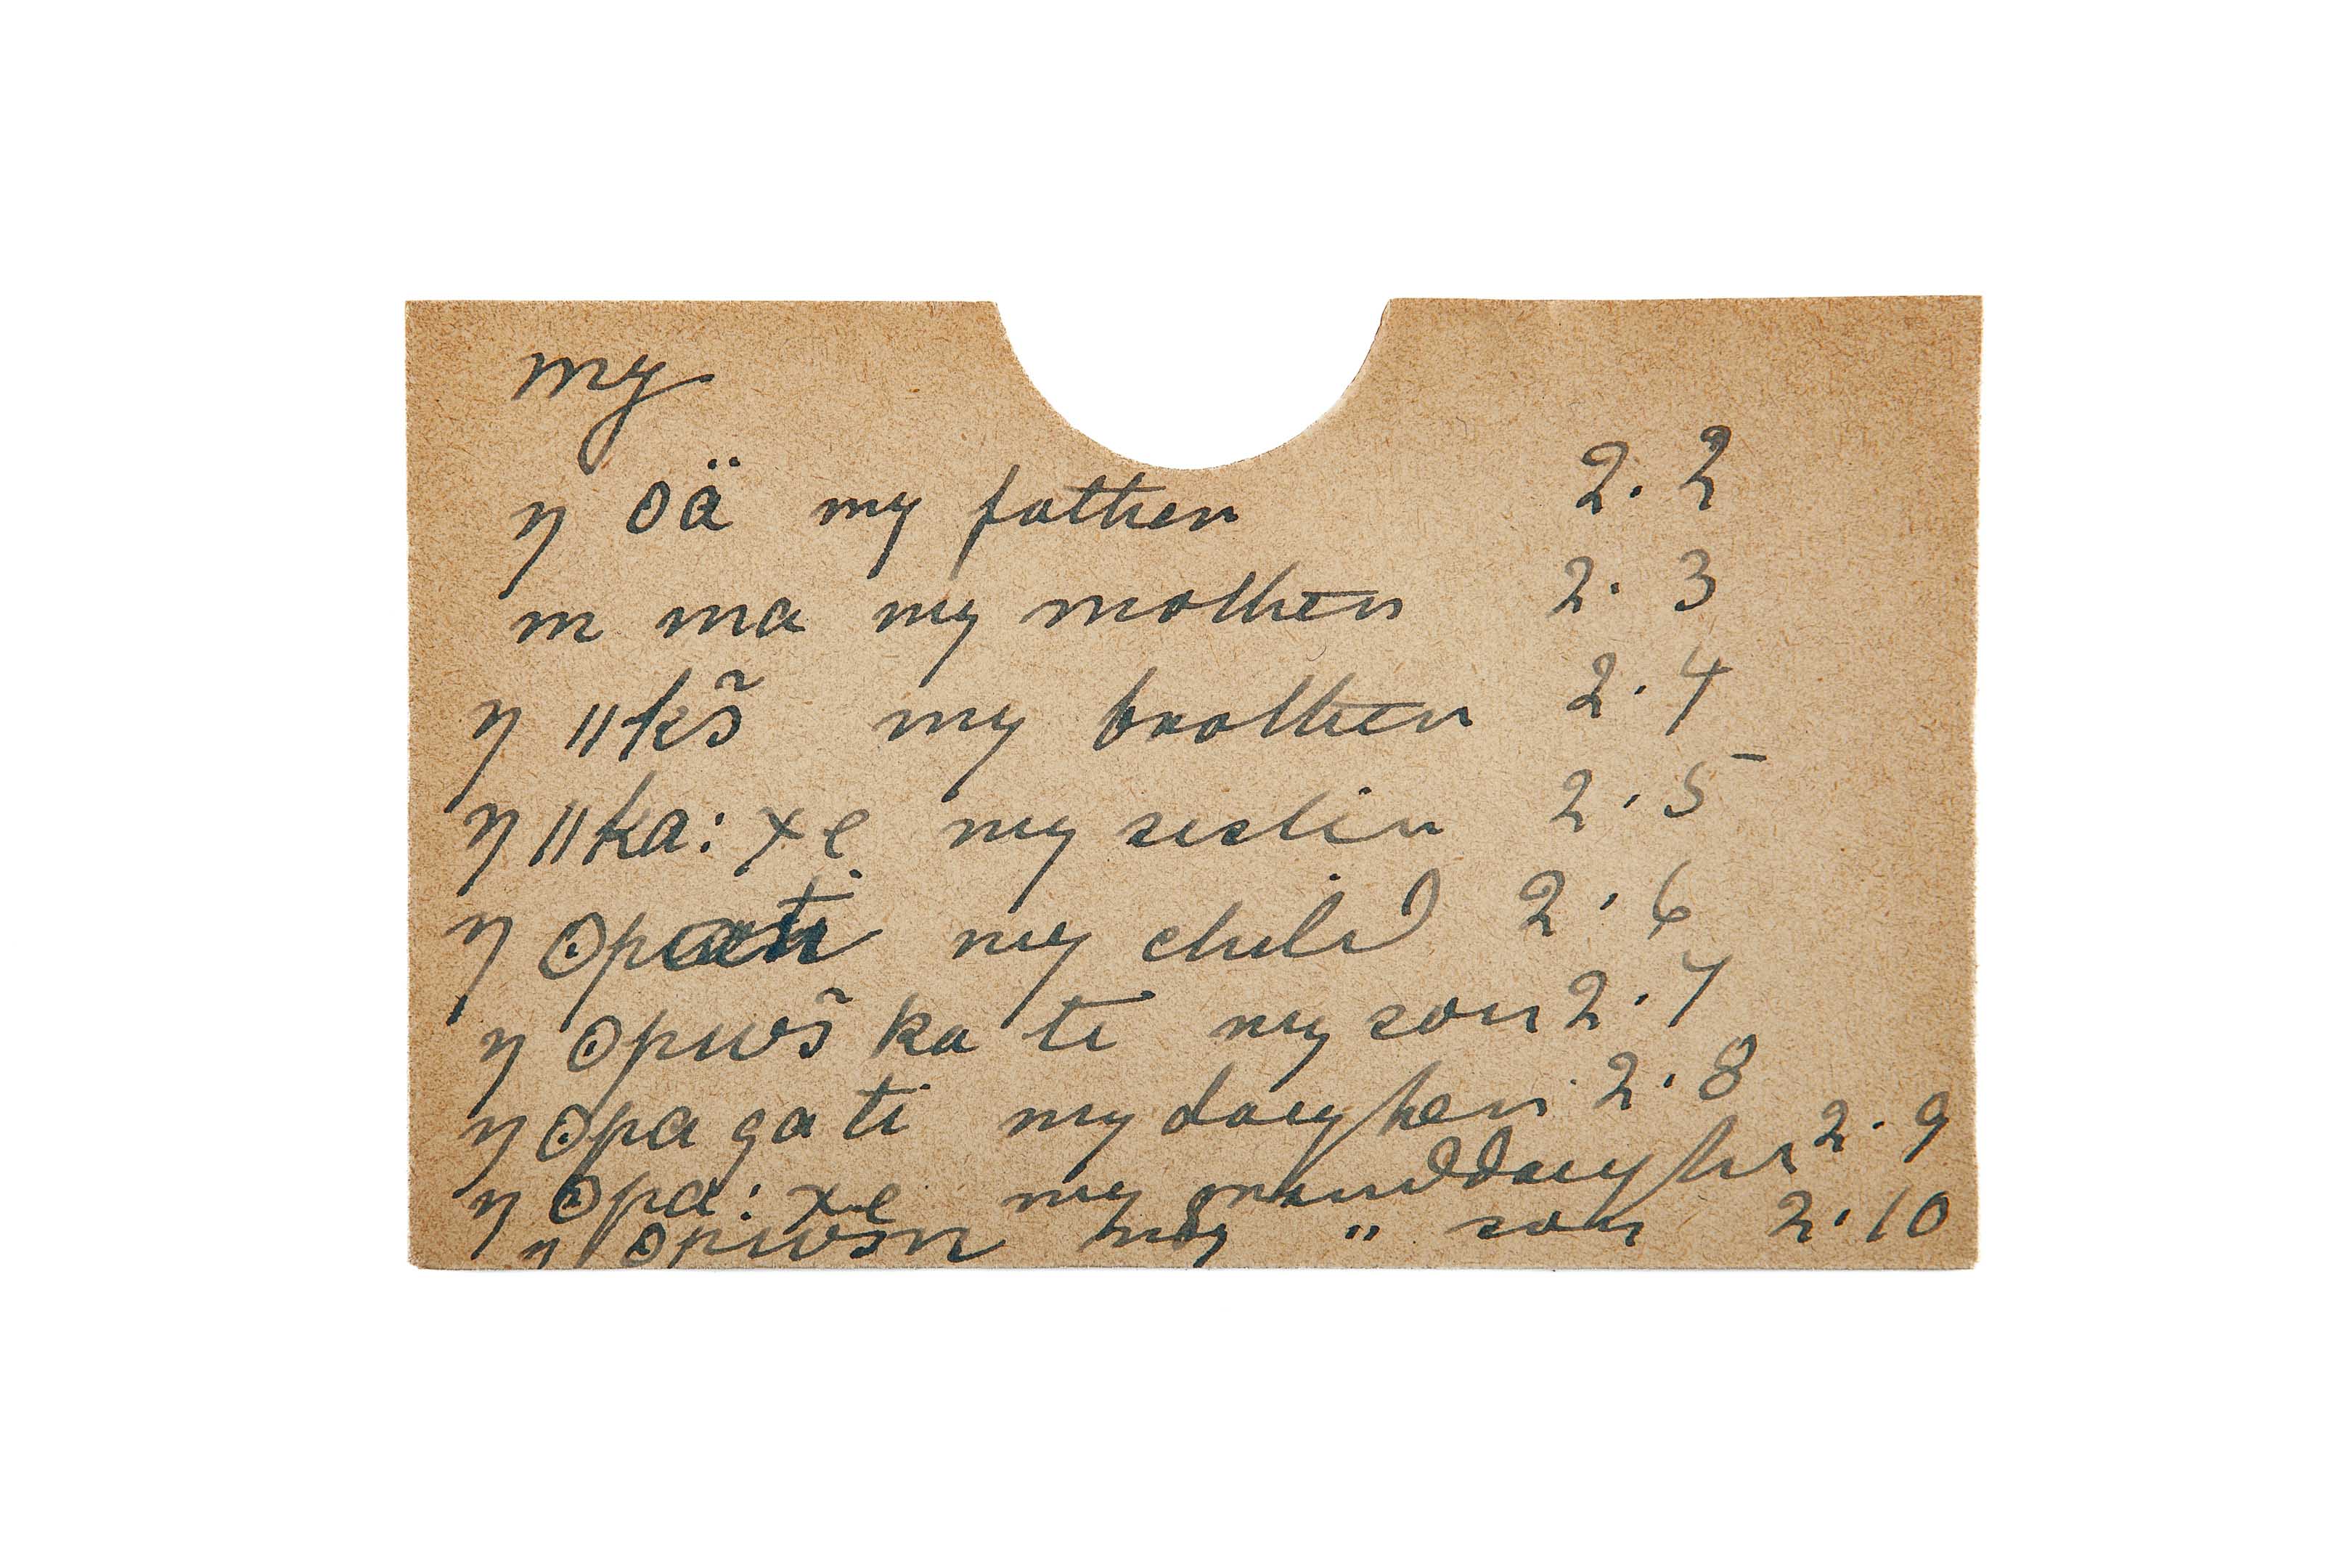 my
ŋ oä my father 2.2
m ma my mother 2.3
ŋ ǁkš̃ my brother 2.4
ŋ ǁka:xe my sister 2.5
ŋ ʘpati my child 2.6
ŋ ʘpwõ ka ti my son 2.7
ŋ ʘpa ga ti my daugher 2.8
ŋ ʘpa:xe my granddaughr 2.9
ŋ ʘpwõn my " son 2.10